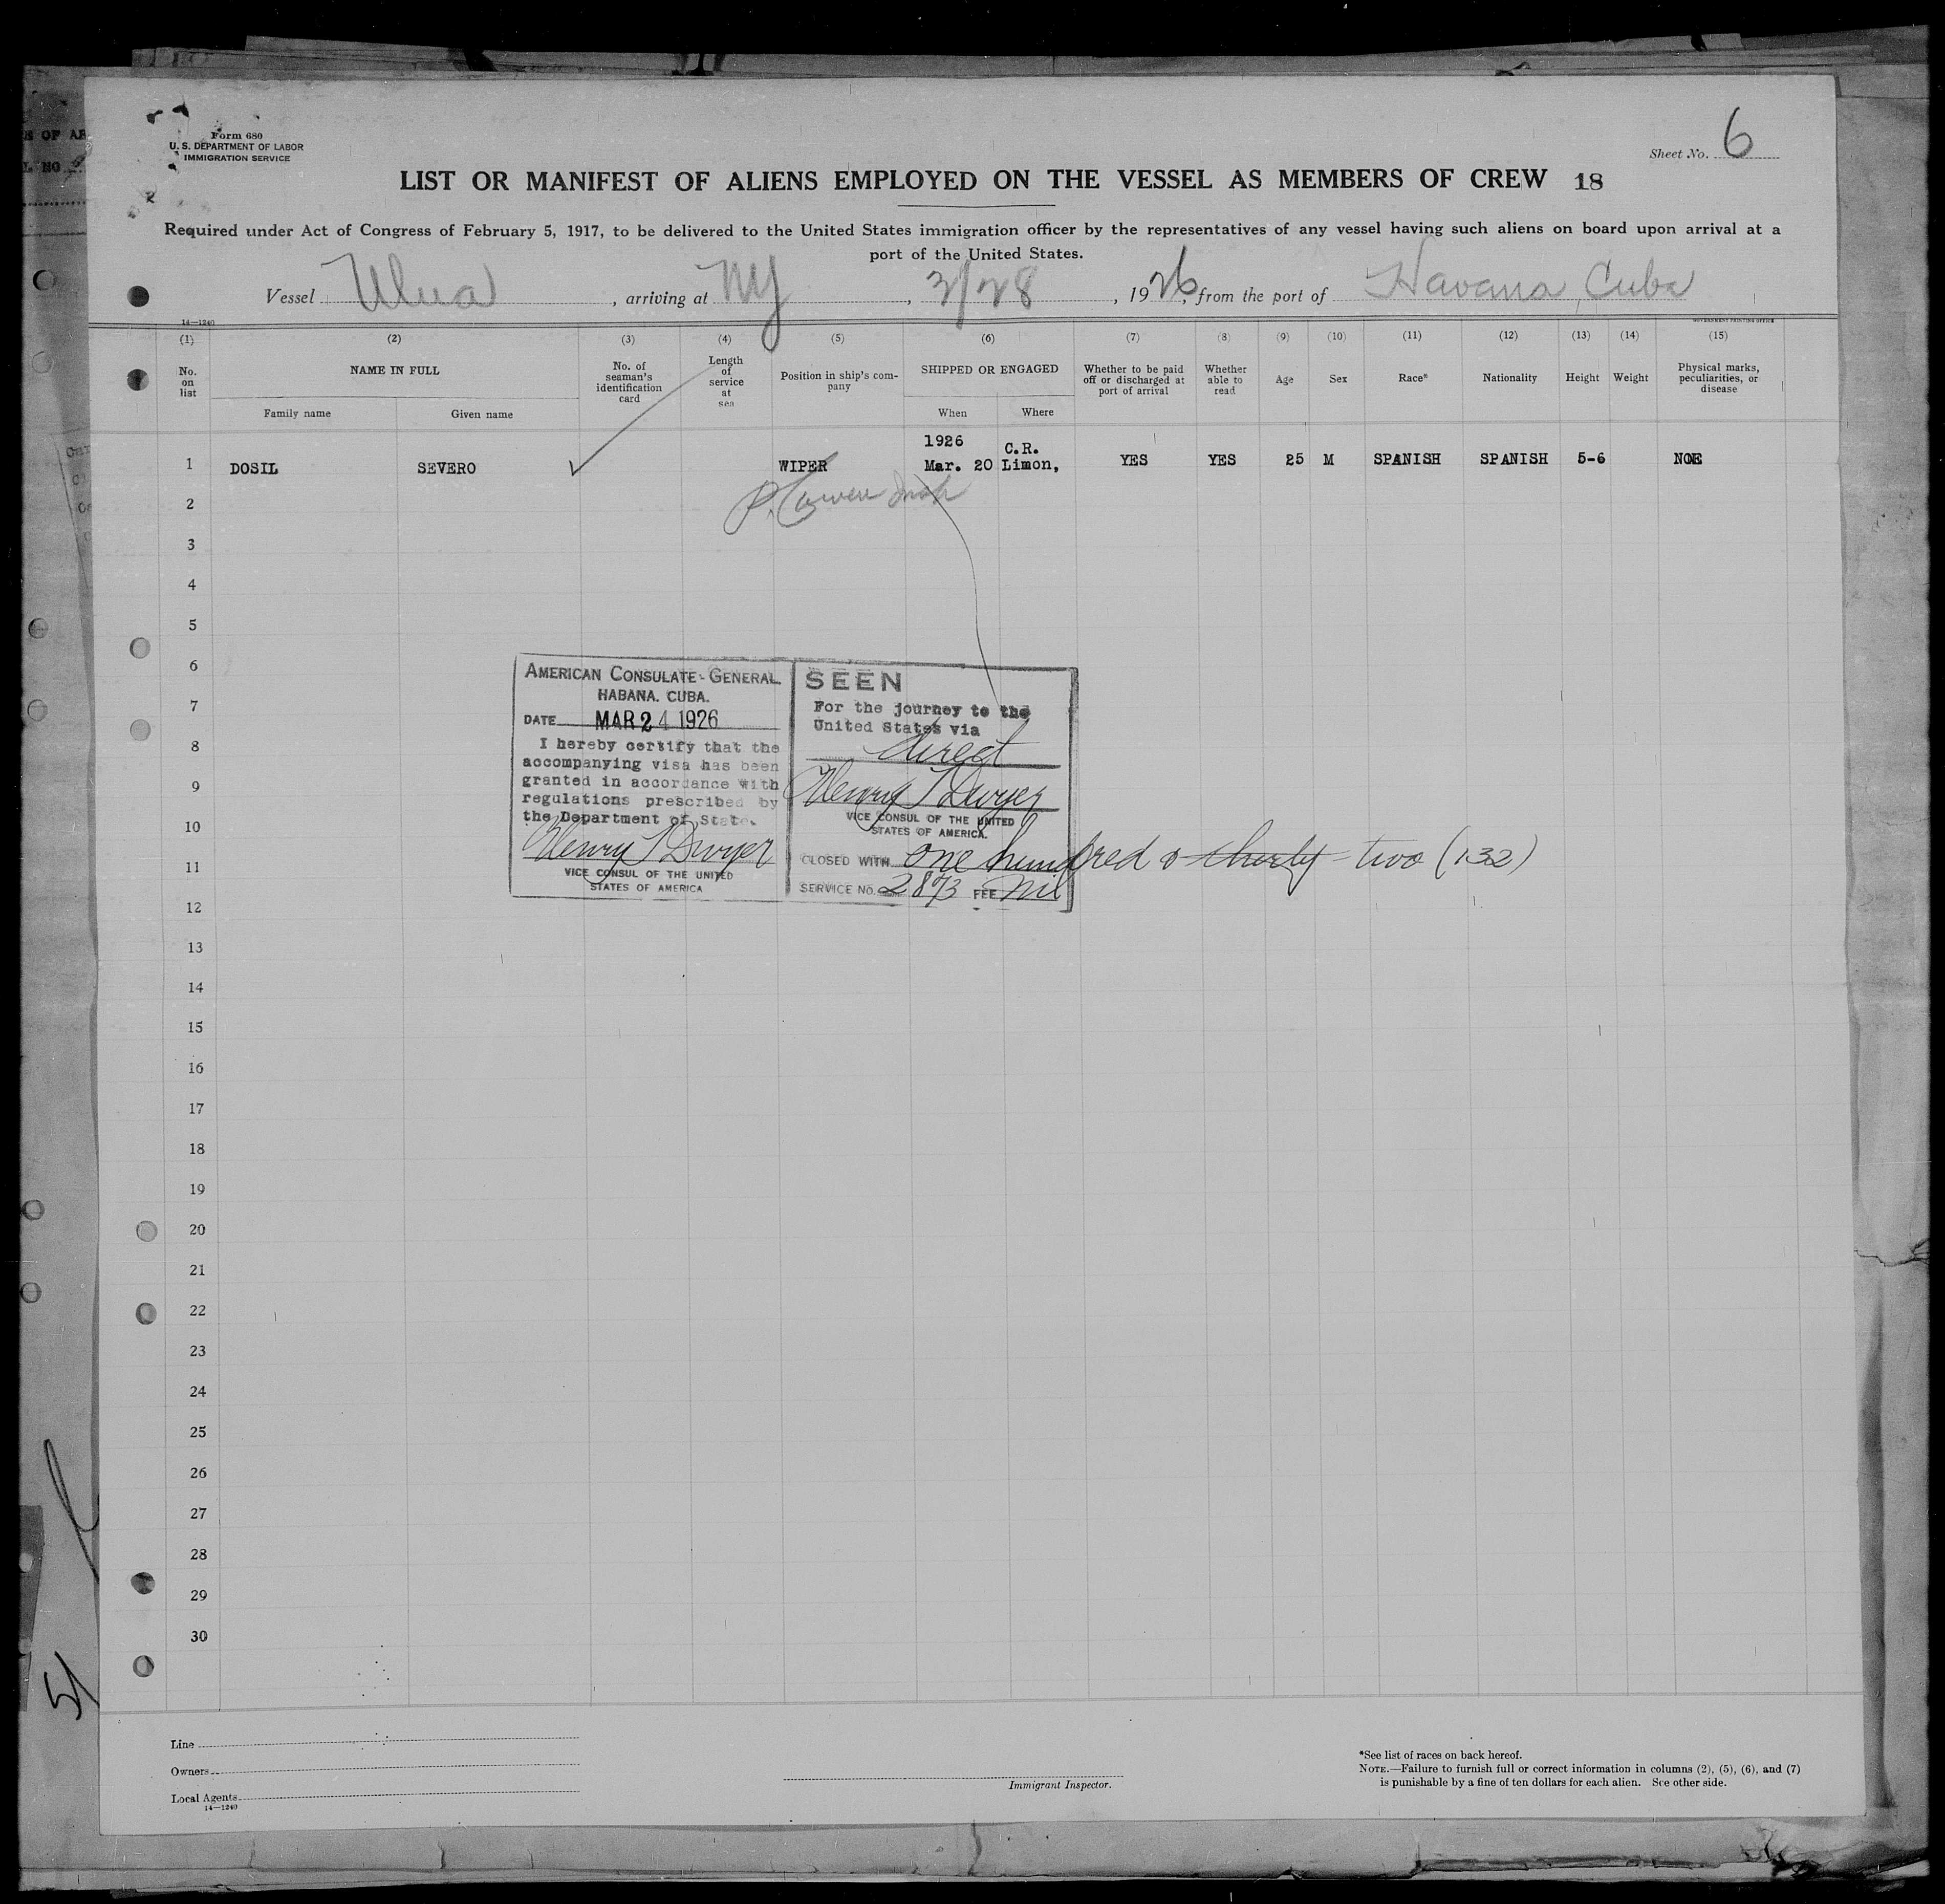 Form 680
U. S. DEPARTMENT OF LABOR
IMMIGRATION SERVICE
Sheet No. 6
LIST OR MANIFEST OF ALIENS EMPLOYED ON THE VESSEL AS MEMBERS OF CREW 18
Required under Act of Congress of February 5, 1917, to be delivered to the United States immigration officer by the representatives of any vessel having such aliens on board upon arrival at a
port of the United States.
Vessel Ulua, arriving at NY, 3/28, 1926, from the port of Havana, Cuba
14—1240
GOVERNMENT PRINTING OFFICE
(1) (2) (3) (4) (5) (6) (7) (8) (9) (10) (11) (12) (13) (14) (15)
No. on list
NAME IN FULL
Family name Given name
No. of seaman's identification card
Length of service at sea
Position in ship's company
SHIPPED OR ENGAGED
When Where
Whether to be paid off or discharged at port of arrival
Whether able to read
Age
Sex
Race*
Nationality
Height
Weight
Physical marks, peculiarities, or disease
1 DOSIL SEVERO WIPER 1926 Mar. 20 C.R. Limon, YES YES 25 M SPANISH SPANISH 5-6 NOE
2
3
4
5
6
7
8
9
10
11
12
13
14
15
16
17
18
19
20
21
22
23
24
25
26
27
28
29
30
AMERICAN CONSULATE-GENERAL
HABANA. CUBA.
DATE MAR 24 1926
I hereby certify that the
accompanying visa has been
granted in accordance with
regulations prescribed by
the Department of State.
Henry T Dwyer
VICE CONSUL OF THE UNITED
STATES OF AMERICA
SEEN
For the journey to the
United States via
direct
Henry T Dwyer
VICE CONSUL OF THE UNITED
STATES OF AMERICA.
CLOSED WITH one hundred & thirty-two (132)
SERVICE NO. 2873 FEE Nil
Line
Owners
Local Agents
14—1240
Immigrant Inspector.
*See list of races on back hereof.
NOTE.—Failure to furnish full or correct information in columns (2), (5), (6), and (7)
is punishable by a fine of ten dollars for each alien. See other side.
5